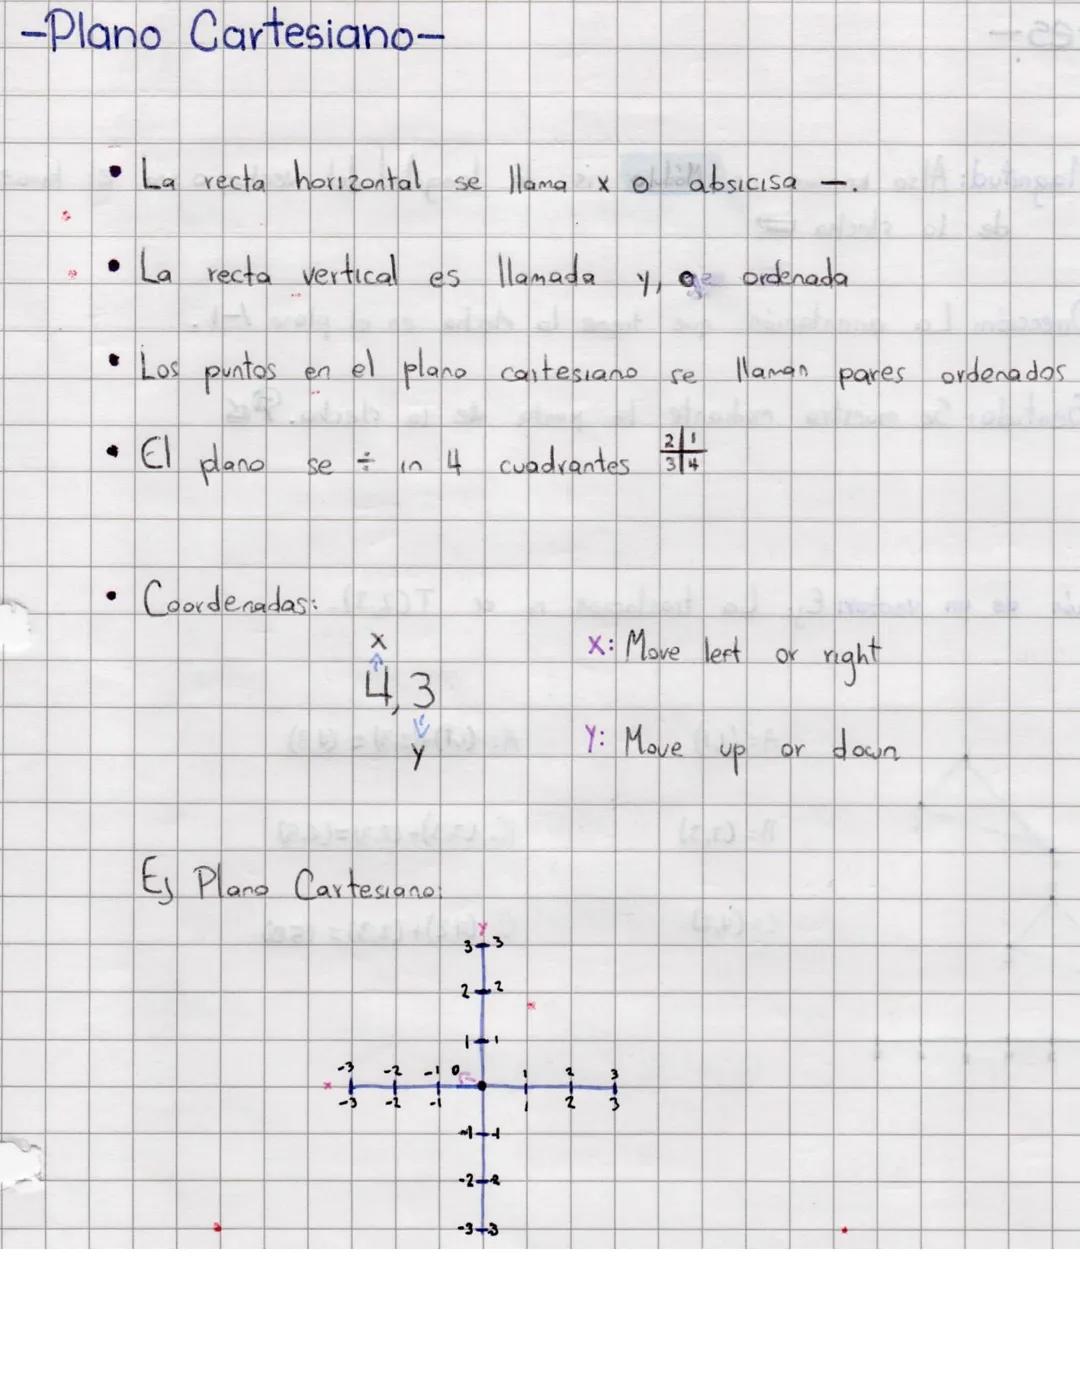 -Plano Cartesiano-
• La recta horizontal se llama x o absicisa —.
• La recta vertical es llamada y, o ordenada
• Los puntos en el plano cartesiano se llaman pares ordenados
• El plano se ÷ in 4 cuadrantes
2 1
3 4
• Coordenadas:
x
X: Move left or right
4,3
Y: Move up or down
y
Ej Plano Cartesiano:
y
3 3
2 2
1 1
-3 -2 -1 0 1 2 3
x
-3 -2 -1 1 2 3
-1 -1
-2 -2
-3 -3